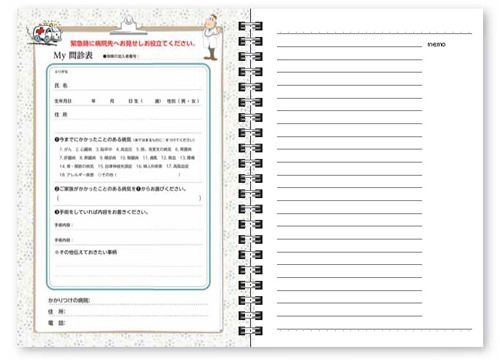 緊急時に病院先へお見せしお役立てください。
My 問診表 ●保険の加入者番号:
ふりがな
氏 名
生年月日 年 月 日生( 歳) 性別(男・女)
住 所
❶今までにかかったことのある病気(あてはまるものに○をつけてください)
1. がん 2. 心臓病 3. 脳卒中 4. 高血圧 5. 肺、気管支の病気 6. 胃腸病
7. 肝臓病 8. 膵臓病 9. 糖尿病 10. 腎臓病 11. 痛風 12. 貧血 13. 腰痛
14. 骨・関節の病気 15. 自律神経失調症 16. 婦人科疾患 17. 高脂血症
18. アレルギー疾患 ◎その他( )
❷ご家族がかかったことのある病気を❶からお選びください。
( )
❸手術をしていれば内容をお書きください。
手術内容:
手術内容:
※その他伝えておきたい事柄
かかりつけの病院:
住 所:
電 話:
memo